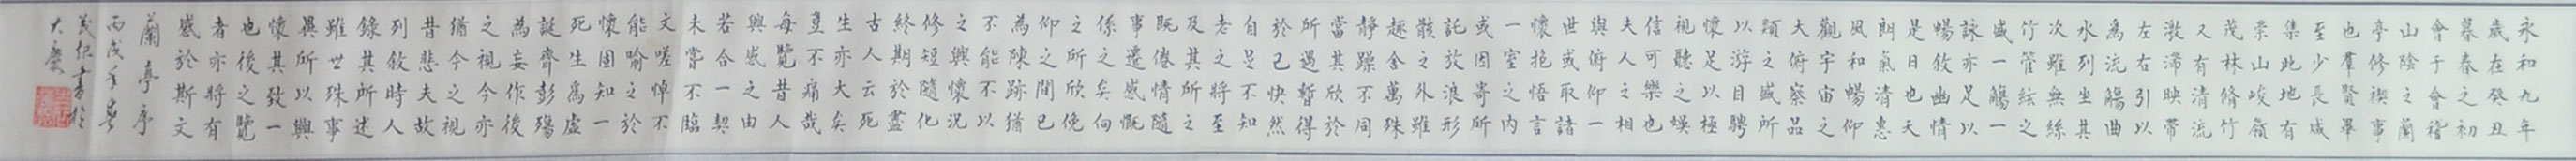 永和九年
歲在癸丑
暮春之初
會于會稽
山陰之蘭
亭修禊事
也羣賢畢
至少長咸
集此地有
崇山峻嶺
茂林脩竹
又有清流
激湍映帶
左右引以
為流觴曲
水列坐其
次雖無絲
竹管絃之
盛一觴一
詠亦足以
暢敘幽情
是日也天
朗氣清惠
風和暢仰
觀宇宙之
大俯察品
類之盛所
以游目騁
懷足以極
視聽之娛
信可樂也
夫人之相
與俯仰一
世或取諸
懷抱悟言
一室之內
或因寄所
託放浪形
骸之外雖
趣舍萬殊
靜躁不同
當其欣於
所遇暫得
於己快然
自足不知
老之將至
及其所之
既倦情隨
事遷感慨
係之矣向
之所欣俛
仰之間已
為陳跡猶
不能不以
之興懷況
修短隨化
終期於盡
古人云死
生亦大矣
豈不痛哉
每覽昔人
興感之由
若合一契
未嘗不臨
文嗟悼不
能喻之於
懷固知一
死生為虛
誕齊彭殤
為妄作後
之視今亦
猶今之視
昔悲夫故
列敘時人
錄其所述
雖世殊事
異所以興
懷其致一
也後之覽
者亦將有
感於斯文
蘭亭序
丙戌年
書於
大慶